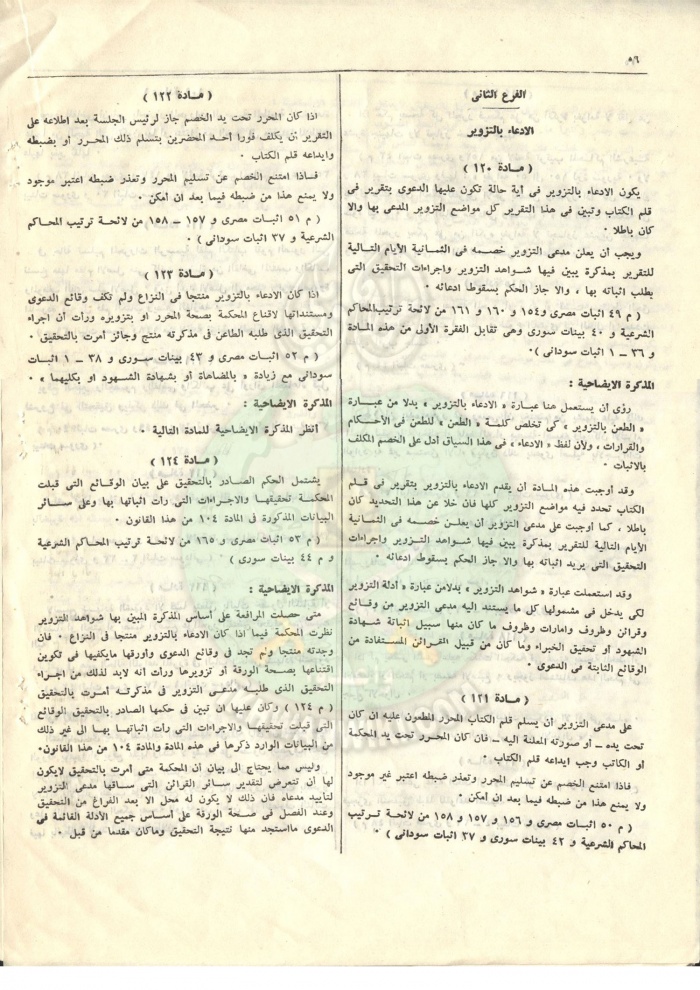 ٥٦
الفرع الثاني
الادعاء بالتزوير
( مادة ١٢٠ )
يكون الادعاء بالتزوير فى أية حالة تكون عليها الدعوى بتقرير فى
قلم الكتاب وتبين فى هذا التقرير كل مواضع التزوير المدعى بها والا
كان باطلا ٠
ويجب أن يعلن مدعى التزوير خصمه فى الثمانية الأيام التالية
للتقرير بمذكرة يبين فيها شواهد التزوير واجراءات التحقيق التى
يطلب اثباته بها ، والا جاز الحكم بسقوط ادعائه ٠
( م ٤٩ اثبات مصرى و١٥٤ و ١٦٠ و ١٦١ من لائحة ترتيب المحاكم
الشرعية و ٤٠ بينات سورى وهى تقابل الفقرة الأولى من هذه المادة
و ٣٦ ــ ١ اثبات سودانى ) ٠
المذكرة الايضاحية :
رؤى أن يستعمل هنا عبارة « الادعاء بالتزوير » بدلا من عبارة
« الطعن بالتزوير » كى تخلص كلمة « الطعن » للطعن فى الأحكام
والقرارات ، ولأن لفظ « الادعاء » فى هذا السياق أدل على الخصم المكلف
بالاثبات ٠
وقد أوجبت هذه المادة أن يقدم الادعاء بالتزوير بتقرير فى قلم
الكتاب تحدد فيه مواضع التزوير كلها فان خلا عن هذا التحديد كان
باطلا ، كما أوجبت على مدعى التزوير أن يعلن خصمه فى الثمانية
الأيام التالية للتقرير بمذكرة يبين فيها شواهد التزوير واجراءات
التحقيق التى يريد اثباته بها والا جاز الحكم بسقوط ادعائه ٠
وقد استعملت عبارة « شواهد التزوير » بدلا من عبارة « أدلة التزوير
لكى يدخل فى مشمولها كل ما يستند اليه مدعى التزوير من وقائع
وقرائن وظروف وامارات وظروف ما كان منها سبيل اثباته شهادة
الشهود أو تحقيق الخبراء وما كان من قبيل القرائن المستفادة من
الوقائع الثابتة فى الدعوى ٠
( مادة ١٢١ )
على مدعى التزوير أن يسلم قلم الكتاب المحرر المطعون عليه ان كان
تحت يده ــ أو صورته المعلنة اليه ــ فان كان المحرر تحت يد المحكمة
أو الكاتب وجب ايداعه قلم الكتاب ٠
فاذا امتنع الخصم عن تسليم المحرر وتعذر ضبطه اعتبر غير موجود
ولا يمنع هذا من ضبطه فيما بعد ان أمكن ٠
( م ٥٠ اثبات مصرى و ١٥٦ و ١٥٧ و ١٥٨ من لائحة ترتيب
المحاكم الشرعية و ٤٢ بينات سورى و ٣٧ اثبات سودانى ) ٠
( مادة ١٢٢ )
اذا كان المحرر تحت يد الخصم جاز لرئيس الجلسة بعد اطلاعه على
التقرير أن يكلف فورا أحد المحضرين بتسلم ذلك المحرر أو بضبطه
وايداعه قلم الكتاب ٠
فاذا امتنع الخصم عن تسليم المحرر وتعذر ضبطه اعتبر موجود
ولا يمنع هذا من ضبطه فيما بعد ان أمكن ٠
( م ٥١ اثبات مصرى و ١٥٧ ــ ١٥٨ من لائحة ترتيب المحاكم
الشرعية و ٣٧ اثبات سودانى ) ٠
( مادة ١٢٣ )
اذا كان الادعاء بالتزوير منتجا فى النزاع ولم تكف وقائع الدعوى
ومستنداتها لاقناع المحكمة بصحة المحرر او بتزويره ورأت أن اجراء
التحقيق الذى طلبه الطاعن فى مذكرته منتج وجائز أمرت بالتحقيق ٠
( م ٥٢ اثبات مصرى و ٤٣ بينات سورى و ٣٨ ــ ١ اثبات
سودانى مع زيادة « بالمضاهاة أو بشهادة الشهود او بكليهما » ٠
المذكرة الايضاحية :
أنظر المذكرة الايضاحية للمادة التالية ٠
( مادة ١٢٤ )
يشتمل الحكم الصادر بالتحقيق على بيان الوقائع التى قبلت
المحكمة تحقيقها والاجراءات التى رأت اثباتها بها وعلى سائر
البيانات المذكورة فى المادة ١٠٤ من هذا القانون ٠
( م ٥٣ اثبات مصرى و ١٦٥ من لائحة ترتيب المحاكم الشرعية
و م ٤٤ بينات سورى )
المذكرة الايضاحية :
متى حصلت المرافعة على أساس المذكرة المبين بها شواهد التزوير
نظرت المحكمة فيما اذا كان الادعاء بالتزوير منتجا فى النزاع ٠ فان
وجدته منتجا ولم تجد فى وقائع الدعوى وأورقها مايكفيها فى تكوين
اقتناعها بصحة الورقة أو تزويرها ورأت أنه لابد لذلك من اجراء
التحقيق الذى طلبه مدعى التزوير فى مذكرته أمرت بالتحقيق
( م ١٢٤ ) وكان عليها ان تبين فى حكمها الصادر بالتحقيق الوقائع
التى قبلت تحقيقها والاجراءات التى رأت اثباتها بها الى غير ذلك
من البيانات الوارد ذكرها فى هذه المادة والمادة ١٠٤ من هذا القانون٠
وليس مما يحتاج الى بيان أن المحكمة متى أمرت بالتحقيق لايكون
لها أن تتعرض لتقدير سائر القرائن التى ساقها مدعى التزوير
لتأييد مدعاه فان ذلك لا يكون له محل الا بعد الفراغ من التحقيق
وعند الفصل فى صحة الورقة على أساس جميع الأدلة القائمة فى
الدعوى مااستجد منها نتيجة التحقيق وماكان مقدما من قبل ٠